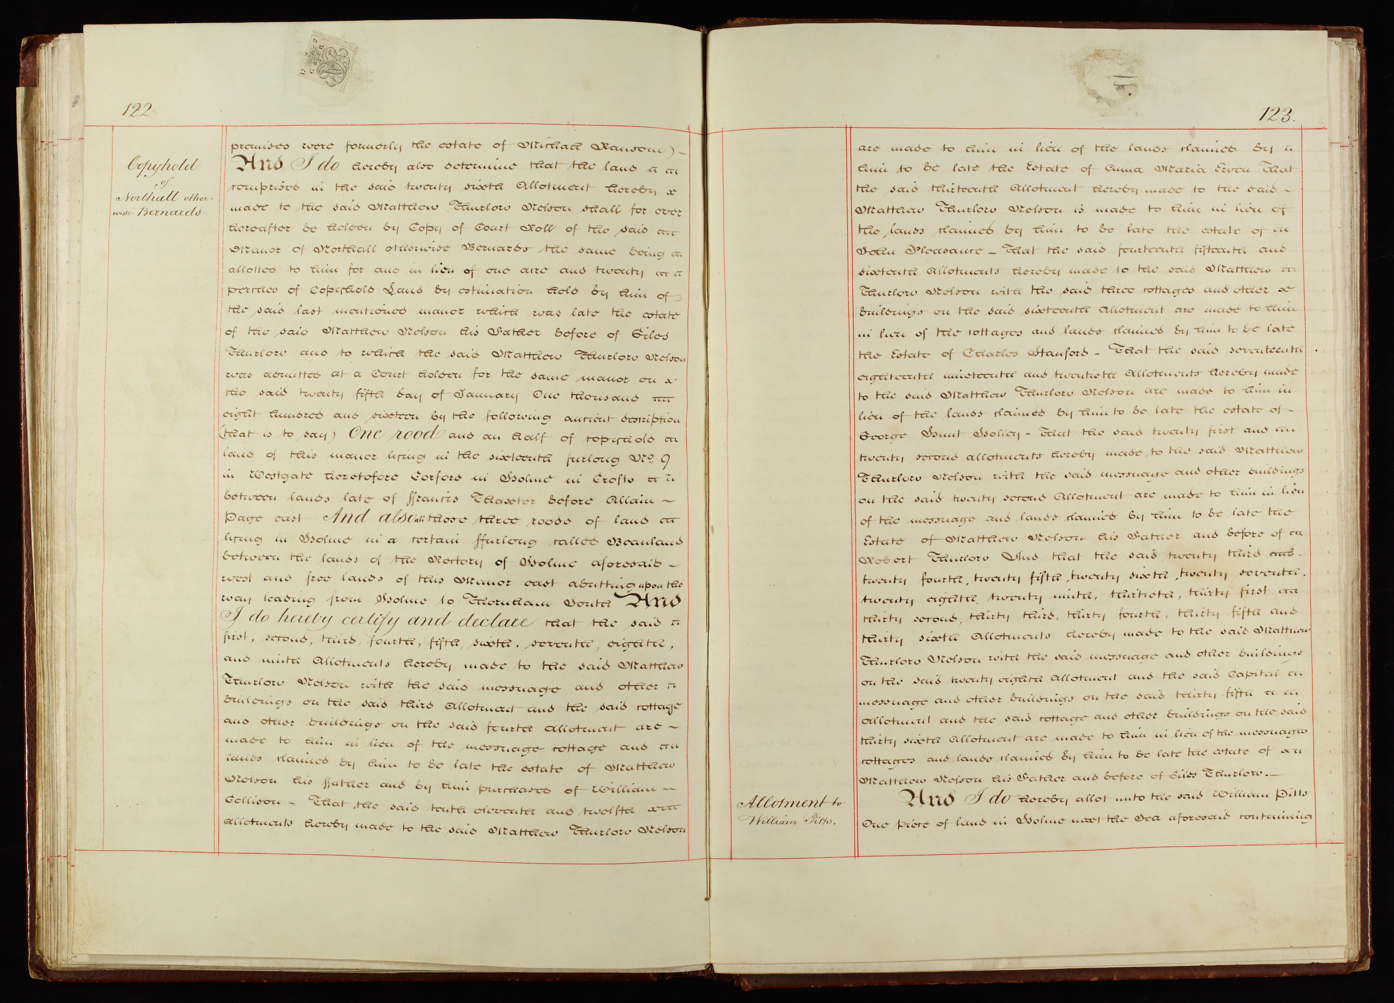 122
Copyhold
of
Northall other-
wise Bernards
premises were formerly the estate of Michael Ransom) -
And I do hereby also determine that the land
comprised in the said twenty sixth Allotment hereby
made to the said Matthew Thurlow Nelson shall for ever
hereafter be holden by Copy of Court Roll of the said
Manor of Northall otherwise Bernards the same being
allotted to him for and in lieu of one acre and twenty
perches of Copyhold Land by estimation held by him of
the said last mentioned manor which was late the estate
of the said Matthew Nelson his Father before of Giles
Thurlow and to which the said Matthew Thurlow Nelson
was admitted at a Court holden for the same manor on
the said twenty fifth day of January One thousand
eight hundred and sixteen by the following ancient description
(that is to say) One rood and an half of copyhold
land of this manor lying in the sixteenth furlong No. 9
in Westgate heretofore Corfors in Holme in Crofts
between lands late of Francis Thaxter before Allain -
Page east And also all those three roods of land
lying in Holme in a certain ffurlong called Beanland
between the lands of the Rectory of Holme aforesaid -
west and free lands of this Manor east abutting upon the
way leading from Holme to Thornham South And
I do hereby certify and declare that the said
first, second, third, fourth, fifth, sixth, seventh, eighth,
and ninth Allotments hereby made to the said Matthew
Thurlow Nelson with the said messuage and other
buildings on the said third Allotment and the said cottage
and other buildings on the said fourth Allotment are -
made to him in lieu of the messuage cottage and
lands claimed by him to be late the estate of Matthew
Nelson his ffather and by him purchased of William -
Collison - That the said tenth eleventh and twelfth
allotments hereby made to the said Matthew Thurlow Nelson
123.
are made to him in lieu of the lands claimed by
him to be late the Estate of Anna Maria Even That
the said thirteenth Allotment hereby made to the said -
Matthew Thurlow Nelson is made to him in lieu of
the lands claimed by him to be late the estate of
John Pleasance - That the said fourteenth fifteenth and
sixteenth Allotments hereby made to the said Matthew
Thurlow Nelson with the said three cottages and other
buildings on the said sixteenth Allotment are made to him
in lieu of the cottages and lands claimed by him to be late
the Estate of Charles Stanford - That the said seventeenth
eighteenth nineteenth and twentieth Allotments hereby made
to the said Matthew Thurlow Nelson are made to him in
lieu of the lands claimed by him to be late the estate of -
George Hunt Holley - That the said twenty first and
twenty second allotments hereby made to the said Matthew
Thurlow Nelson with the said messuage and other buildings
on the said twenty second Allotment are made to him in lieu
of the messuage and lands claimed by him to be late the
Estate of Matthew Nelson his Father and before of
Robert Thurlow And that the said twenty third
twenty fourth, twenty fifth, twenty sixth, twenty seventh,
twenty eighth, twenty ninth, thirtieth, thirty first
thirty second, thirty third, thirty fourth, thirty fifth and
thirty sixth Allotments hereby made to the said Matthew
Thurlow Nelson with the said messuage and other buildings
on the said twenty eighth Allotment and the said Capital
messuage and other buildings on the said thirty fifth
Allotment and the said cottage and other buildings on the said
thirty sixth Allotment are made to him in lieu of the messuages
cottages and lands claimed by him to be late the estate of
Matthew Nelson his Father and before of Giles Thurlow. -
Allotment to
William Pitts.
And I do hereby allot unto the said William Pitts
One piece of land in Holme next the Sea aforesaid containing